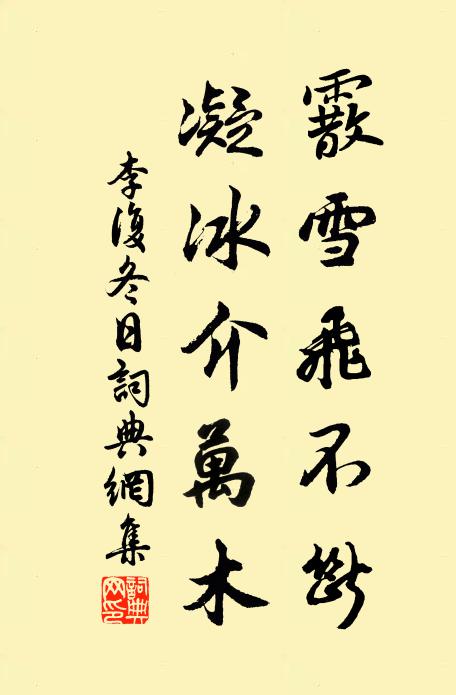 霰雪飛不斷
凝冰介萬木
李復冬日詞典網集
詞典網印